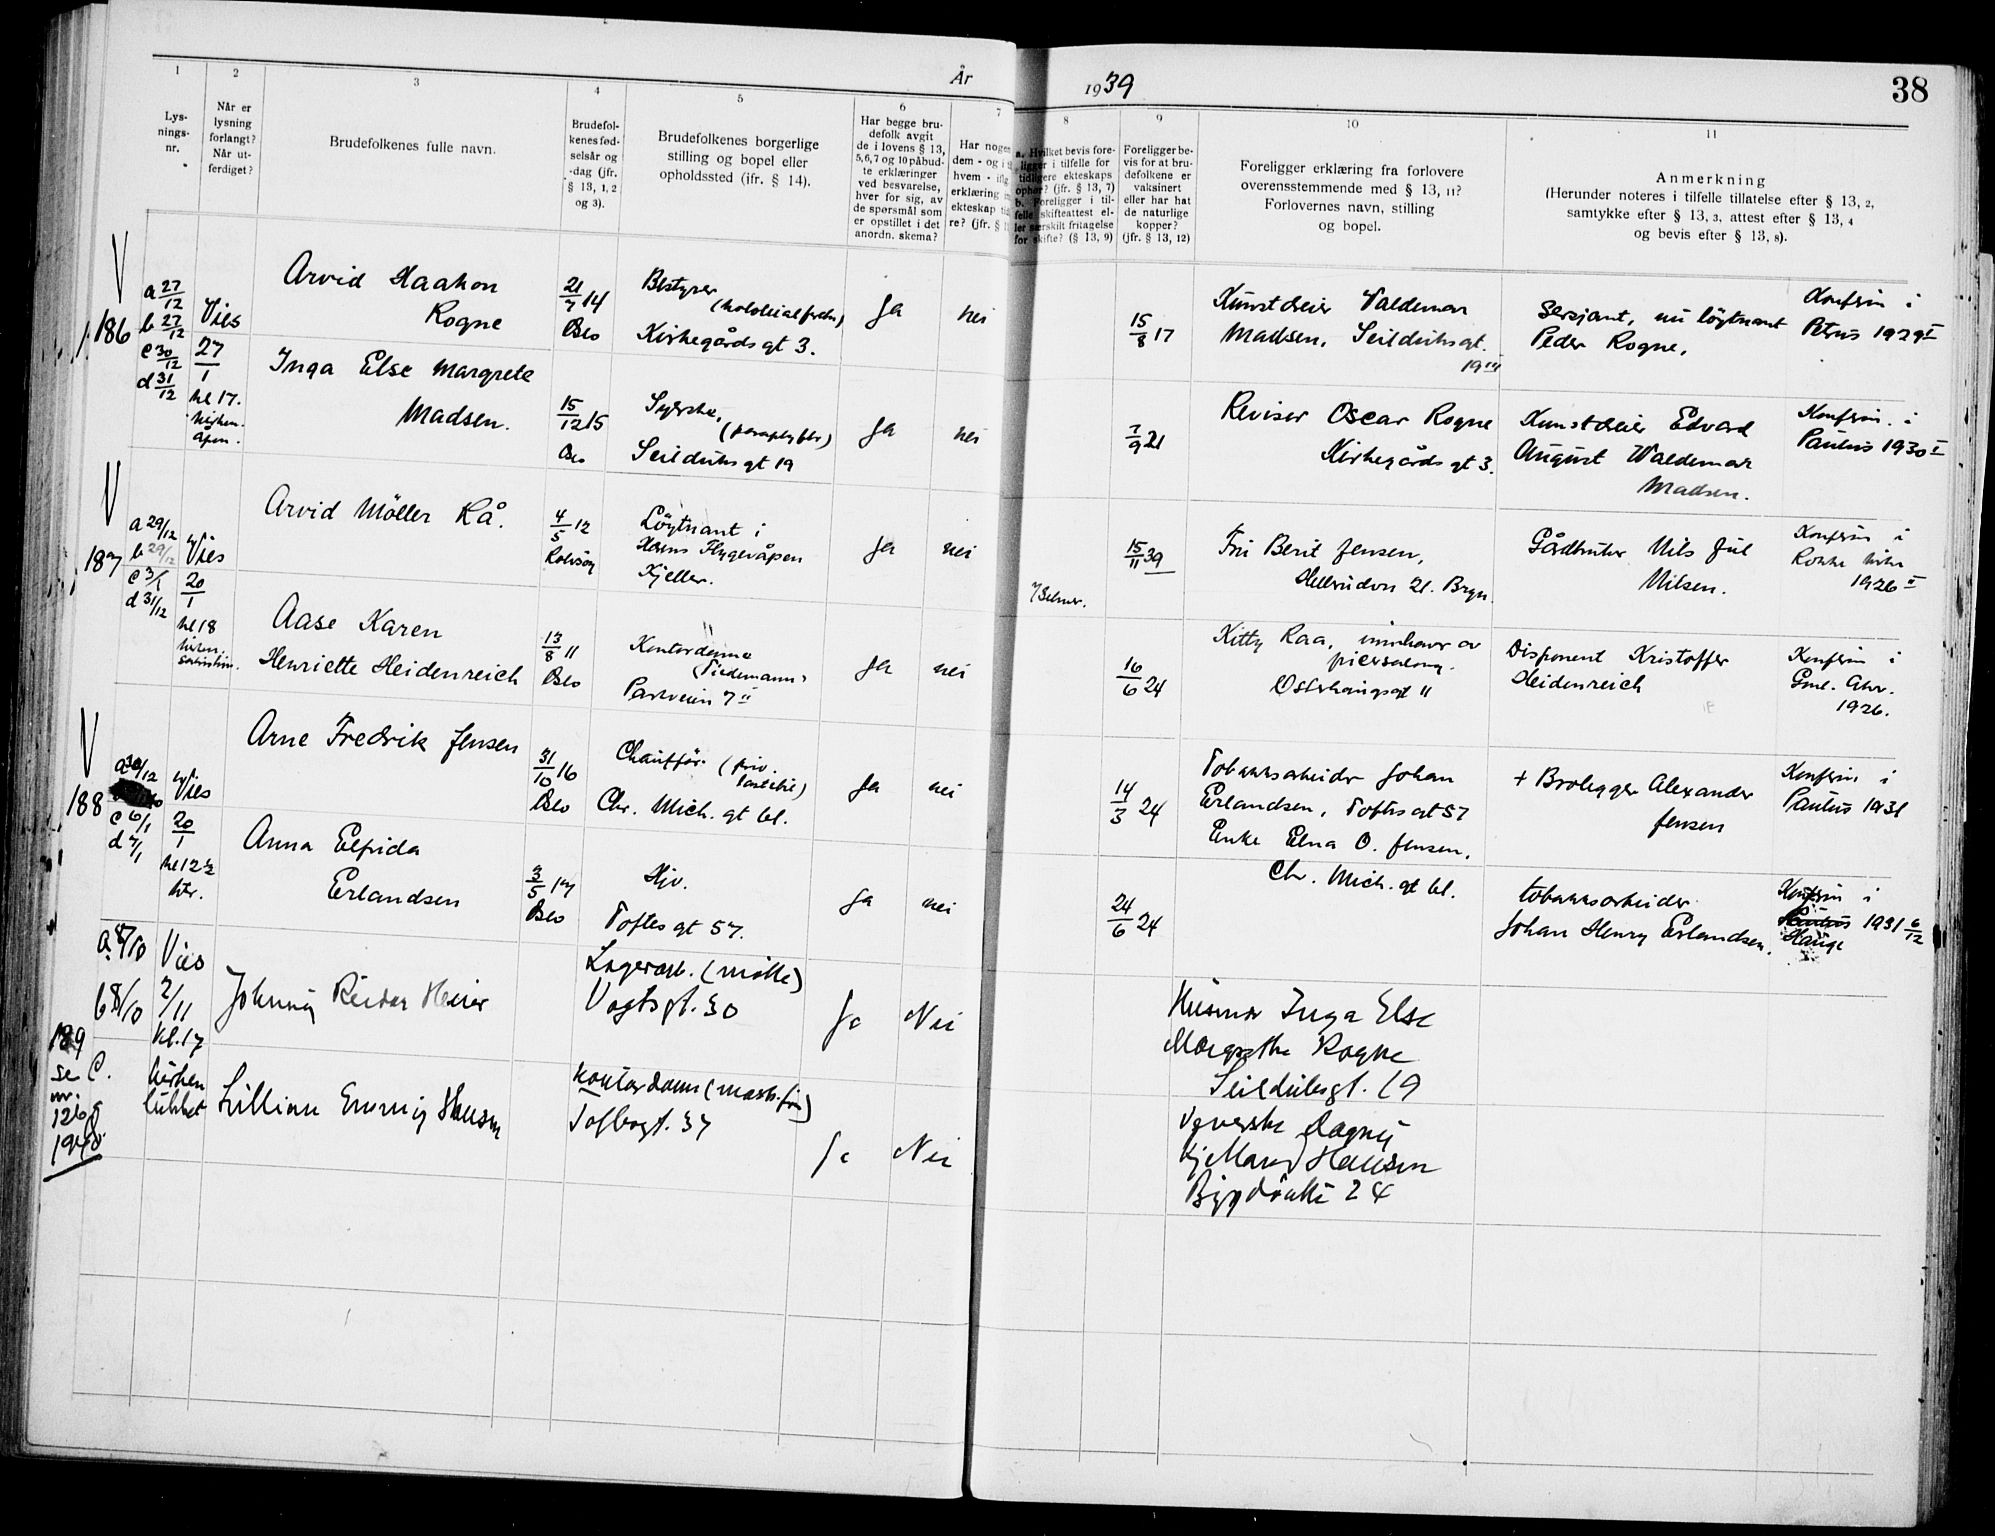 År 1939
38
1
2
3
4
5
6
7
8
9
10
11
Lys-
nings-
nr.
Når er
lysning
forlangt?
Når ut-
ferdiget?
Brudefolkenes fulle navn.
Brudefol-
kenes fød-
selsår og
-dag (jfr.
§ 13, 1, 2
og 3).
Brudefolkenes borgerlige
stilling og bopel eller
opholdssted (ifr. § 14).
Har begge bru-
defolk avgit
de i lovens § 13,
5, 6, 7 og 10 påbud-
te erklæringer
ved besvarelse,
hver for sig, av
de spørsmål som
er opstillet i det
anordn. skema?
Har nogen
dem - og i
hvem - iflg
erklæring
ekteskap
re? (jfr. §
a. Hvilket bevis fore-
ligger i tilfelle for
tidligere ekteskaps
ophør? (jfr. § 13, 7)
b. Foreligger i til-
felle skifteattest el-
ler særskilt fritagelse
for skifte? (§ 13, 9)
Foreligger be-
vis for at bru-
defolkene er
vaksinert
eller har hat
de naturlige
kopper?
(jfr. § 13, 12)
Foreligger erklæring fra forlovere
overensstemmende med § 13, 11?
Forlovernes navn, stilling
og bopel.
Anmerkning
(Herunder noteres i tilfelle tillatelse efter § 13, 2,
samtykke efter § 13, 3, attest efter § 13, 4
og bevis efter § 13, 8).
V
186
a 27/12
b 27/12
c 30/12
d 31/12
Vies
27/1
kl 17.
åpen.
Arvid Haakon
Rogne
21/7 14
Oslo
Bestyrer
(kolonialforr)
Kirkegårds gt 3.
Ja
nei
15/8 17
Kunstdreier Valdemar
Madsen, Seilduksgt.
19 III
Sersjant, nu löytnant
Peder Rogne,
Konfirm i
Petrus 1929 II
Inga Else Margrete
Madsen.
15/12 15
Oslo
Syerske,
(paraplyfbr)
Seilduks gt 19
Ja
nei
7/9 21
Revisor Oscar Rogne
Kirkegårds gt 3.
Kunstdreier Edvard
August Waldemar
Madsen.
Konfirm. i
Paulus 1930 I
V
187
a 29/12
b 29/12
c 3/1
d 31/12
Vies
20/1
kl 18
Arvid Möller Rå.
4/5 12
Rolvsöy
Löytnant i
Hærens Flygevåpen
Kjeller.
Ja
nei
15/11 39
Frk Berit Jensen,
21. Bryn.
Gårdbruker Nils Jul
Nilsen.
Konfirm i
Rokke kirke
1926 II
Aase Karen
Henriette Heidenreich
13/8 11
Oslo
Kontordame
Tiedemann,
Parkveien 7 II
Ja
nei
16/6 24
Kitty Raa, innehaver av
Osterhausgt 11
Disponent Kristoffer
Heidenreich
Konfirm i
Gml. Aker.
1926.
V
188
a 30/12
c 6/1
d 7/1
Vies
20/1
kl 12 1/2
Arne Fredrik Jensen
31/10 16
Oslo
Chaufför (priv.
lastebil)
Chr. Mich. gt 61.
Ja
nei
14/3 24
Tobakksarbeider Johan
Erlandsen, Toftes gt 57
Enke Elna O. Jensen,
Chr. Mich. gt 61.
+ Brolegger Alexander
Jensen
Konfirm i
Paulus 1931
Anna Elfrida
Erlandsen
3/5 17
Oslo
Hjv.
Toftes gt 57.
Ja
nei
24/6 24
tobakksarbeider
Johan Henry Erlandsen.
Konfirm i
Paulus 1931 6/12
Hauge
189
se
nr.
126
1940
a. 8/10
b 8/10
C.
Vies
2/11
kl. 17
kirken
lukket
Johnny Reidar Heier
Lagerarb. (mölle)
Vogtsgt. 30
Ja
Nei
Husmor Inga Else
Margrethe Rogne
Seilduksgt. 19
Lillian Emmy Hansen
Kontordame (mask.fir)
Toftesgt. 37
Ja
Nei
Veverske Dagny
Hansen
24